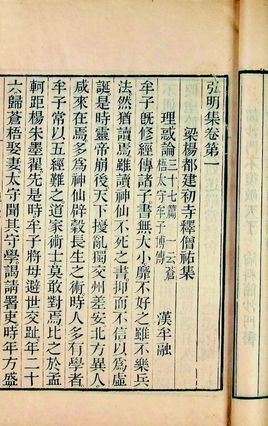 弘明集卷第一
梁楊都建初寺釋僧祐集
理惑論 三十七篇 一云蒼梧太守牟子博傳 漢牟融
牟子既修經傳諸子書無大小靡不好之雖不樂兵
法然猶讀焉雖讀神仙不死之書抑而不信以為虛
誕是時靈帝崩後天下擾亂獨交州差安北方異人
咸來在焉多為神仙辟穀長生之術時人多有學者
牟子常以五經難之道家術士莫敢對焉比之於孟
軻距楊朱墨翟先是時牟子將母避世交趾年二十
六歸蒼梧娶妻太守聞其守學謁請署吏時年方盛